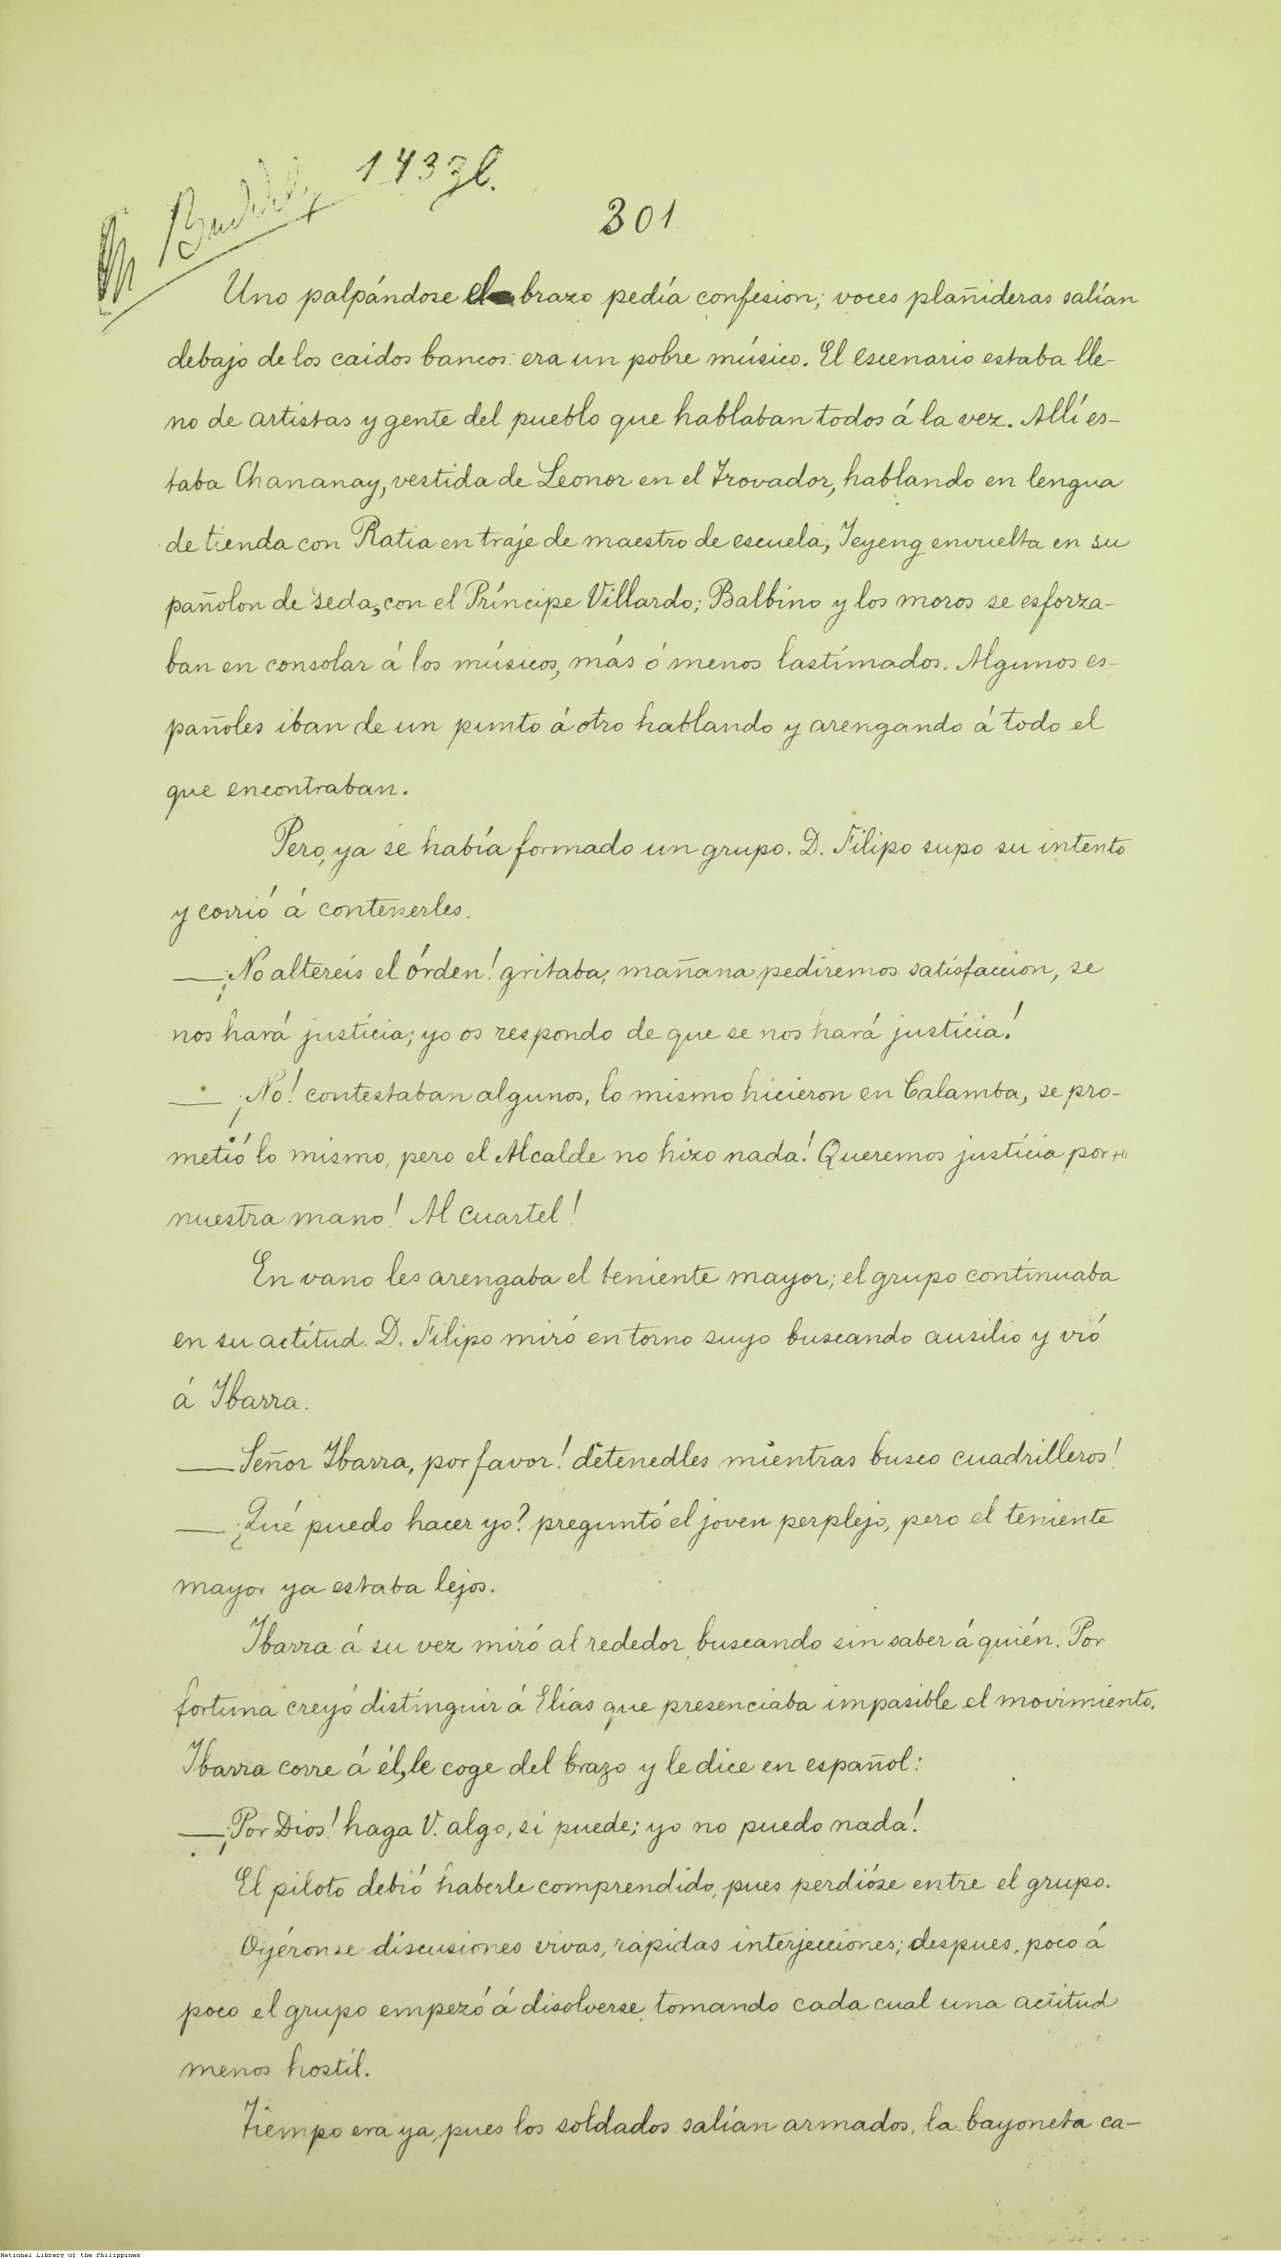 1433 l.
301
Uno palpándose el brazo pedía confesion; voces plañideras salían
debajo de los caidos bancos: era un pobre músico. El escenario estaba lle-
no de artistas y gente del pueblo que hablaban todos á la vez. Allí es-
taba Chananay, vestida de Leonor en el Trovador, hablando en lengua
de tienda con Ratia en traje de maestro de escuela; Yeyeng envuelta en su
pañolon de seda, con el Príncipe Villardo; Balbino y los moros se esforza-
ban en consolar á los músicos, más ó menos lastimados. Algunos es-
pañoles iban de un punto á otro hablando y arengando á todo el
que encontraban.
Pero, ya se había formado un grupo. D. Filipo supo su intento
y corrió á contenerles.
—¡No altereis el órden! gritaba; mañana pediremos satisfaccion, se
nos hará justicia; yo os respondo de que se nos hará justicia!
— ¡No! contestaban algunos, lo mismo hicieron en Calamba, se pro-
metió lo mismo, pero el Alcalde no hizo nada! Queremos justicia por
nuestra mano! Al cuartel!
En vano les arengaba el teniente mayor; el grupo continuaba
en su actitud. D. Filipo miró en torno suyo buscando ausilio y vió
á Ibarra.
—Señor Ibarra, por favor! detenedles mientras busco cuadrilleros!
— ¿Qué puedo hacer yo? preguntó el joven perplejo, pero el teniente
mayor ya estaba lejos.
Ibarra á su vez miró al rededor buscando sin saber á quién. Por
fortuna creyó distinguir á Elías que presenciaba impasible el movimiento.
Ibarra corre á él, le coge del brazo y le dice en español:
—¡Por Dios! haga V. algo, si puede; yo no puedo nada!
El piloto debió haberle comprendido, pues perdióse entre el grupo.
Oyéronse discusiones vivas, rápidas interjecciones; despues, poco á
poco el grupo empezó á disolverse, tomando cada cual una actitud
menos hostil.
Tiempo era ya, pues los soldados salían armados, la bayoneta ca-
National Library of the Philippines